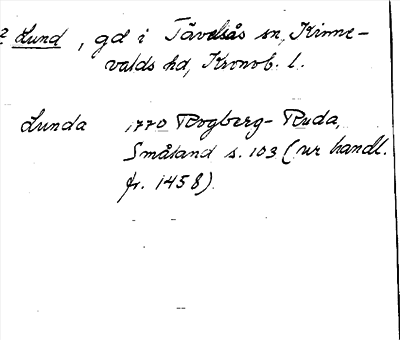 2 Lund, gd i Tävelsås sn, Kinne-
valds hd, Kronob. l.
Lunda 1770 Rogberg-Ruda,
Småland s. 103 (ur handl.
fr. 1458).